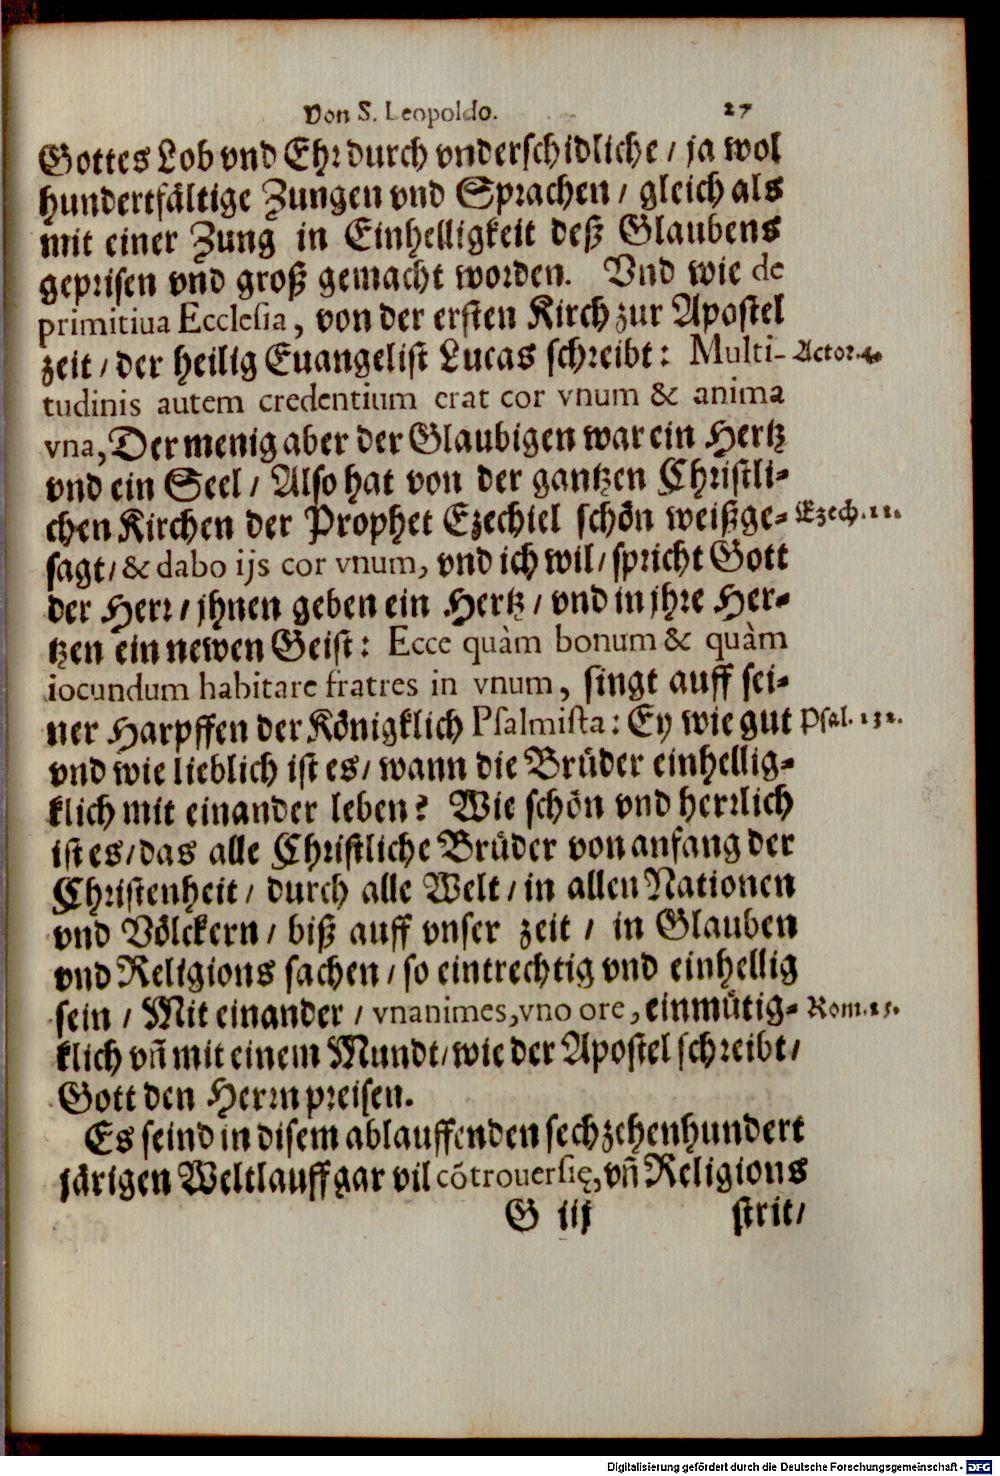 Von S. Leopoldo. 27
Gottes Lob vnd Ehr durch vnderschidliche / ja wol
hundertfältige Zungen vnd Sprachen / gleich als
mit einer Zung in Einhelligkeit deß Glaubens
geprisen vnd groß gemacht worden. Vnd wie de
primitiua Ecclesia, von der ersten Kirch zur Apostel
zeit / der heilig Euangelist Lucas schreibt: Multi- Actor. 4.
tudinis autem credentium erat cor vnum & anima
vna, Der menig aber der Glaubigen war ein Hertz
vnd ein Seel / Also hat von der gantzen Christli-
chen Kirchen der Prophet Ezechiel schön weißge- Ezech. 11.
sagt / & dabo ijs cor vnum, vnd ich wil / spricht Gott
der Herr / jhnen geben ein Hertz / vnd in jhre Her-
tzen ein newen Geist: Ecce quàm bonum & quàm
iocundum habitare fratres in vnum, singt auff sei-
ner Harpffen der Königklich Psalmista: Ey wie gut Psal. 132.
vnd wie lieblich ist es / wann die Brüder einhellig-
klich mit einander leben? Wie schön vnd herrlich
ist es / das alle Christliche Brüder von anfang der
Christenheit / durch alle Welt / in allen Nationen
vnd Völckern / biß auff vnser zeit / in Glauben
vnd Religions sachen / so eintrechtig vnd einhellig
sein / Mit einander / vnanimes, vno ore, einmütig- Rom. 15.
klich vñ mit einem Mundt / wie der Apostel schreibt /
Gott den Herrn preisen.
Es seind in disem ablauffenden sechzehenhundert
järigen Weltlauff gar vil cõtrouersię, vñ Religions
G iij strit /
Digitalisierung gefördert durch die Deutsche Forschungsgemeinschaft - DFG